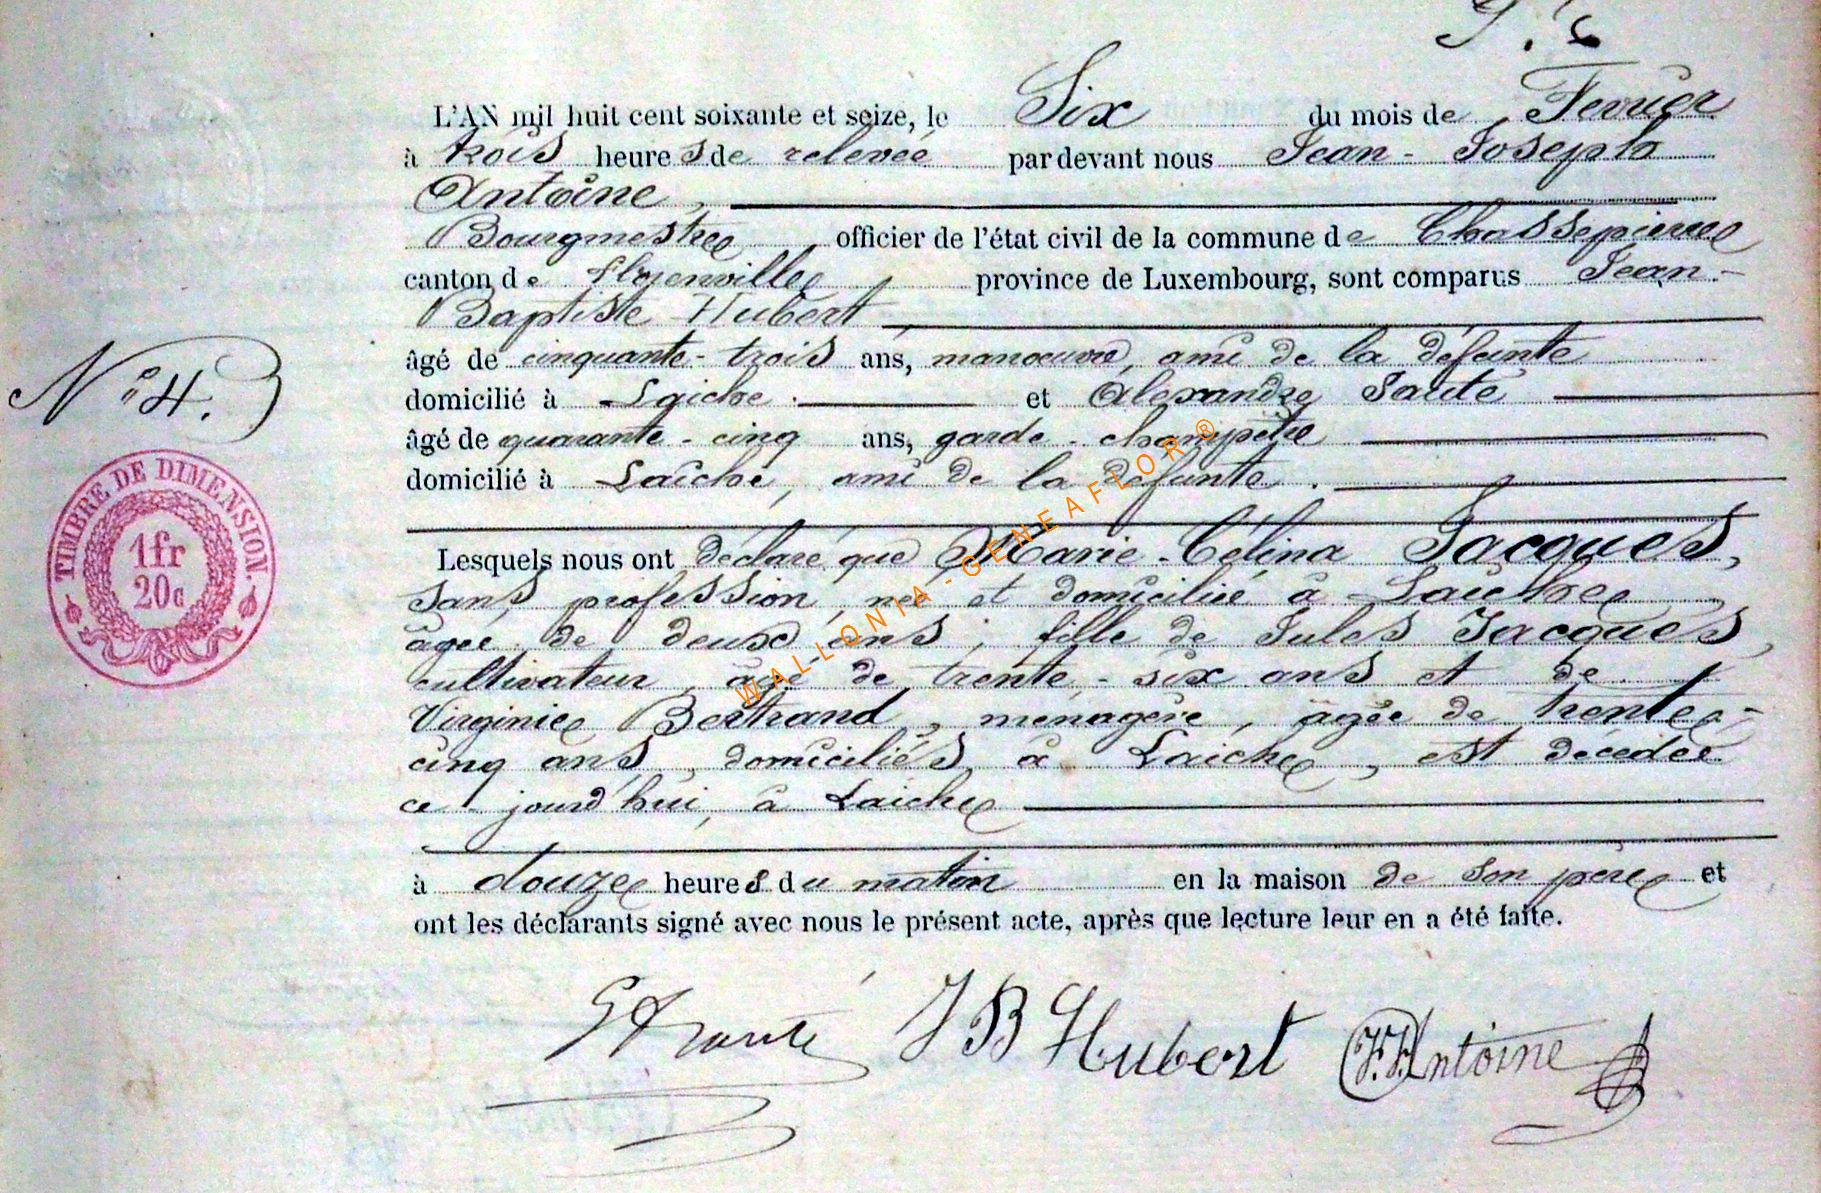 L'AN mil huit cent soixante et seize, le Six du mois de Fevrier
à trois heures de relevée par devant nous Jean-Joseph
Antoine,
Bourgmestre, officier de l'état civil de la commune de Chassepierre
canton de Florenville, province de Luxembourg, sont comparus Jean-
Baptiste Hubert,
âgé de cinquante-trois ans, manœuvre, ami de la défunte
domicilié à Laiche. et Alexandre
âgé de quarante-cinq ans, garde-champêtre
domicilié à Laiche, ami de la défunte.
Lesquels nous ont déclaré que Marie-Célina Jacques,
sans profession, née et domiciliée à Laiche,
âgée de deux ans, fille de Jules Jacques,
cultivateur, âgé de trente-six ans et de
Virginie Bertrand, ménagère, âgée de trente-
cinq ans, domiciliés à Laiche, est décédée
ce-jourd'hui, à Laiche
à douze heures du matin en la maison de son père et
ont les déclarants signé avec nous le présent acte, après que lecture leur en a été faite.
JB Hubert J.J. Antoine
N° 4.
TIMBRE DE DIMENSION.
1fr
20c
WALLONIA-GENEAFLOR®